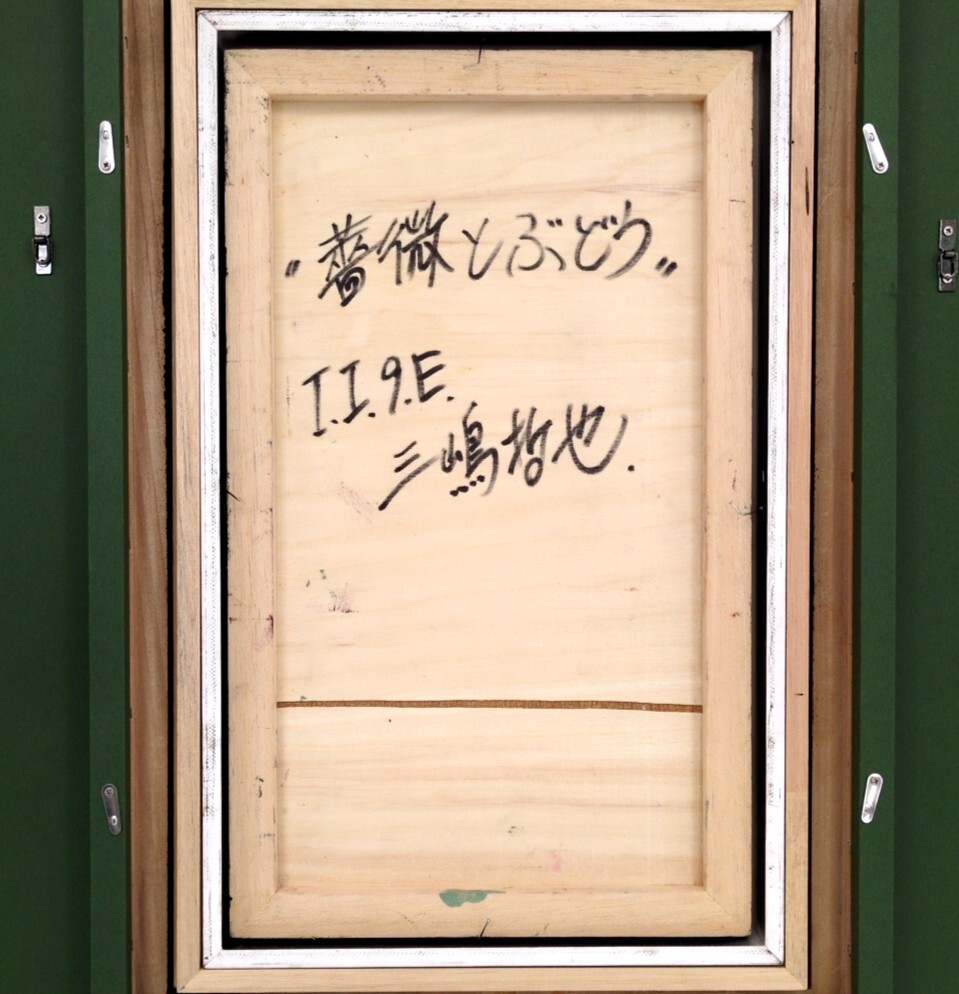 "薔薇とぶどう"
I.I.9.E.
三嶋哲也.